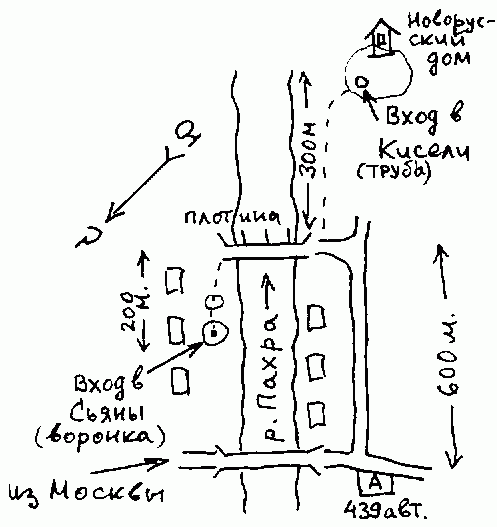 Новорус-
ский
дом
Вход в
Кисели
(труба)
300м
Ю
С
плотина
200
м.
р. Пахра
600 м.
Вход в
Сьяны
(воронка)
из Москвы
А
439авт.